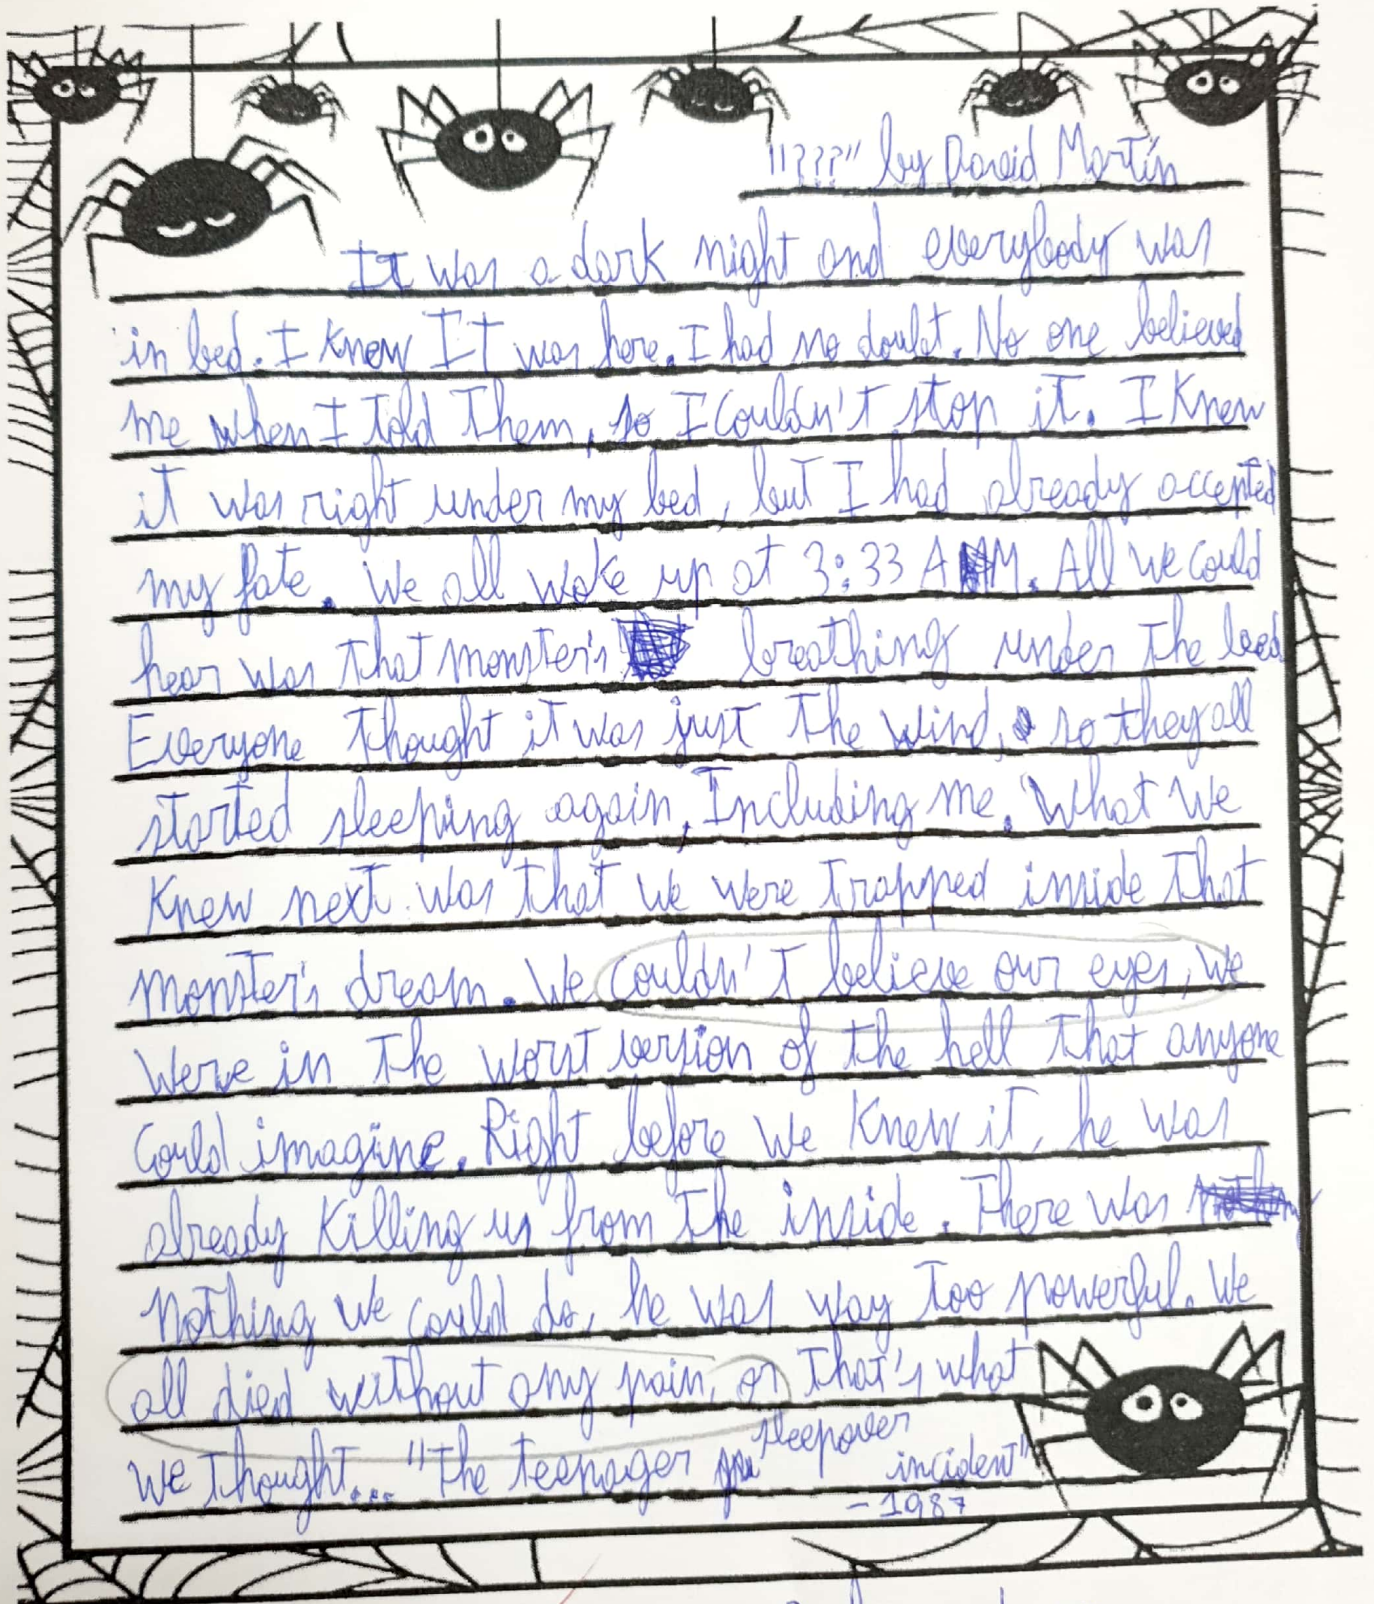 "???" by David Martín
It was a dark night and everybody was
in bed. I knew IT was here. I had no doubt. No one believed
me when I told them, so I couldn't stop it. I knew
it was right under my bed, but I had already accepted
my fate. We all woke up at 3:33 AM. All we could
hear was that monster's breathing under the bed
Everyone thought it was just the wind, so they all
started sleeping again, Including me. What we
knew next was that we were trapped inside that
monster's dream. We couldn't believe our eyes, we
were in the worst version of the hell that anyone
could imagine. Right before we knew it, he was
already killing us from the inside. There was
nothing we could do, he was way too powerful. We
all died without any pain, or that's what
we thought... "The teenager sleepover incident"
-1987